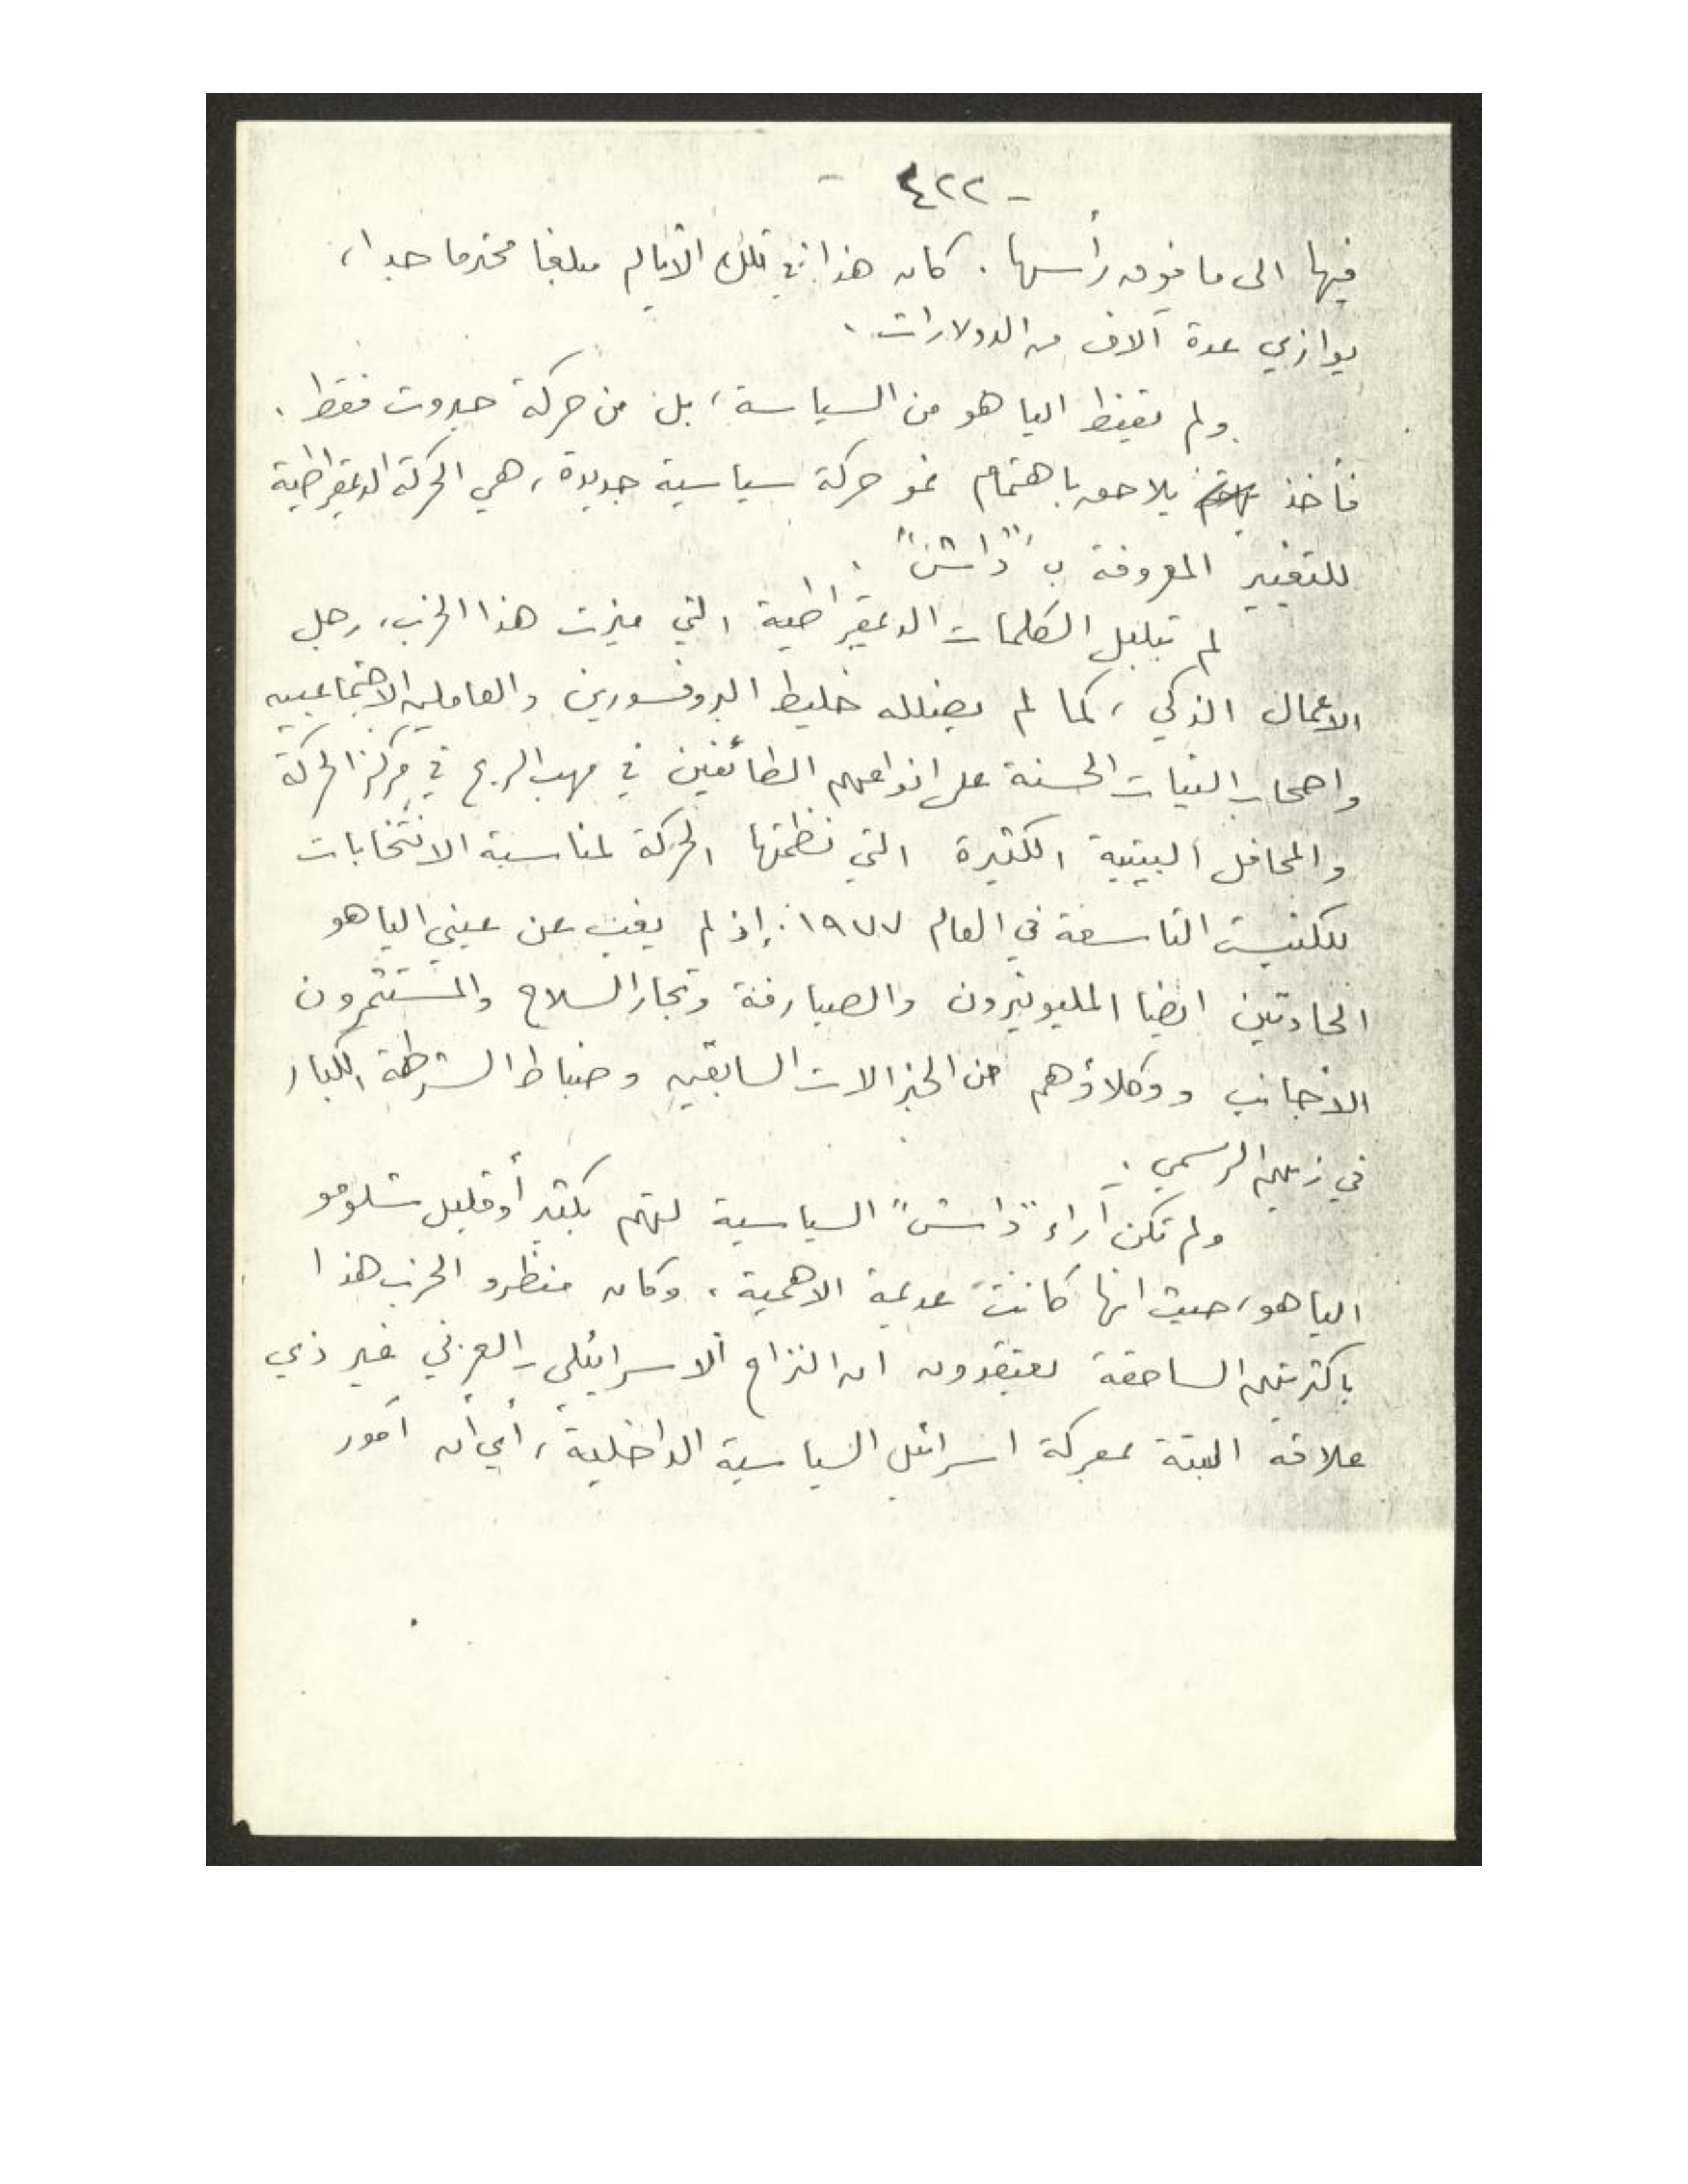 - ٤٢٢ -
فيها الى ما فوق رأسها . كان هذا في تلك الأيام مبلغا محترما جدا ،
يوازي عدة آلاف من الدولارات .
ولم يقنط الياهو من السياسة ، بل من حركة حيروت فقط .
فأخذ يلاحق باهتمام نمو حركة سياسية جديدة ، هي الحركة الديمقراطية
للتغيير المعروفة ب "داش" .
لم تبلبل الكلمات الديمقراطية التي ميزت هذا الحزب ، رجل
الاعمال الذكي ، كما لم يضلله خليط البروفسورين والعاملين الاجتماعيين
واصحاب النيات الحسنة على انواعهم الطائفين في مهب الريح في مركز الحركة
والمحافل البيتية الكثيرة التي نظمتها الحركة لمناسبة الانتخابات
للكنيست التاسعة في العام ١٩٧٧ . إذ لم يغب عن عيني الياهو
الحادتين ايضا المليونيرون والصيارفة وتجار السلاح والمستثمرون
الأجانب ووكلاؤهم من الجنرالات السابقين وضباط الشرطة الكبار
في زيهم الرسمي .
ولم تكن آراء "داش" السياسية لتهم بكثير أو قليل شلومو
الياهو ، حيث انها كانت عديمة الاهمية . وكان منظرو الحزب هذا
باكثريتهم الساحقة يعتقدون ان النزاع الاسرائيلي - العربي غير ذي
علاقة البتة بمعركة اسرائيل السياسية الداخلية ، أي أن أمور